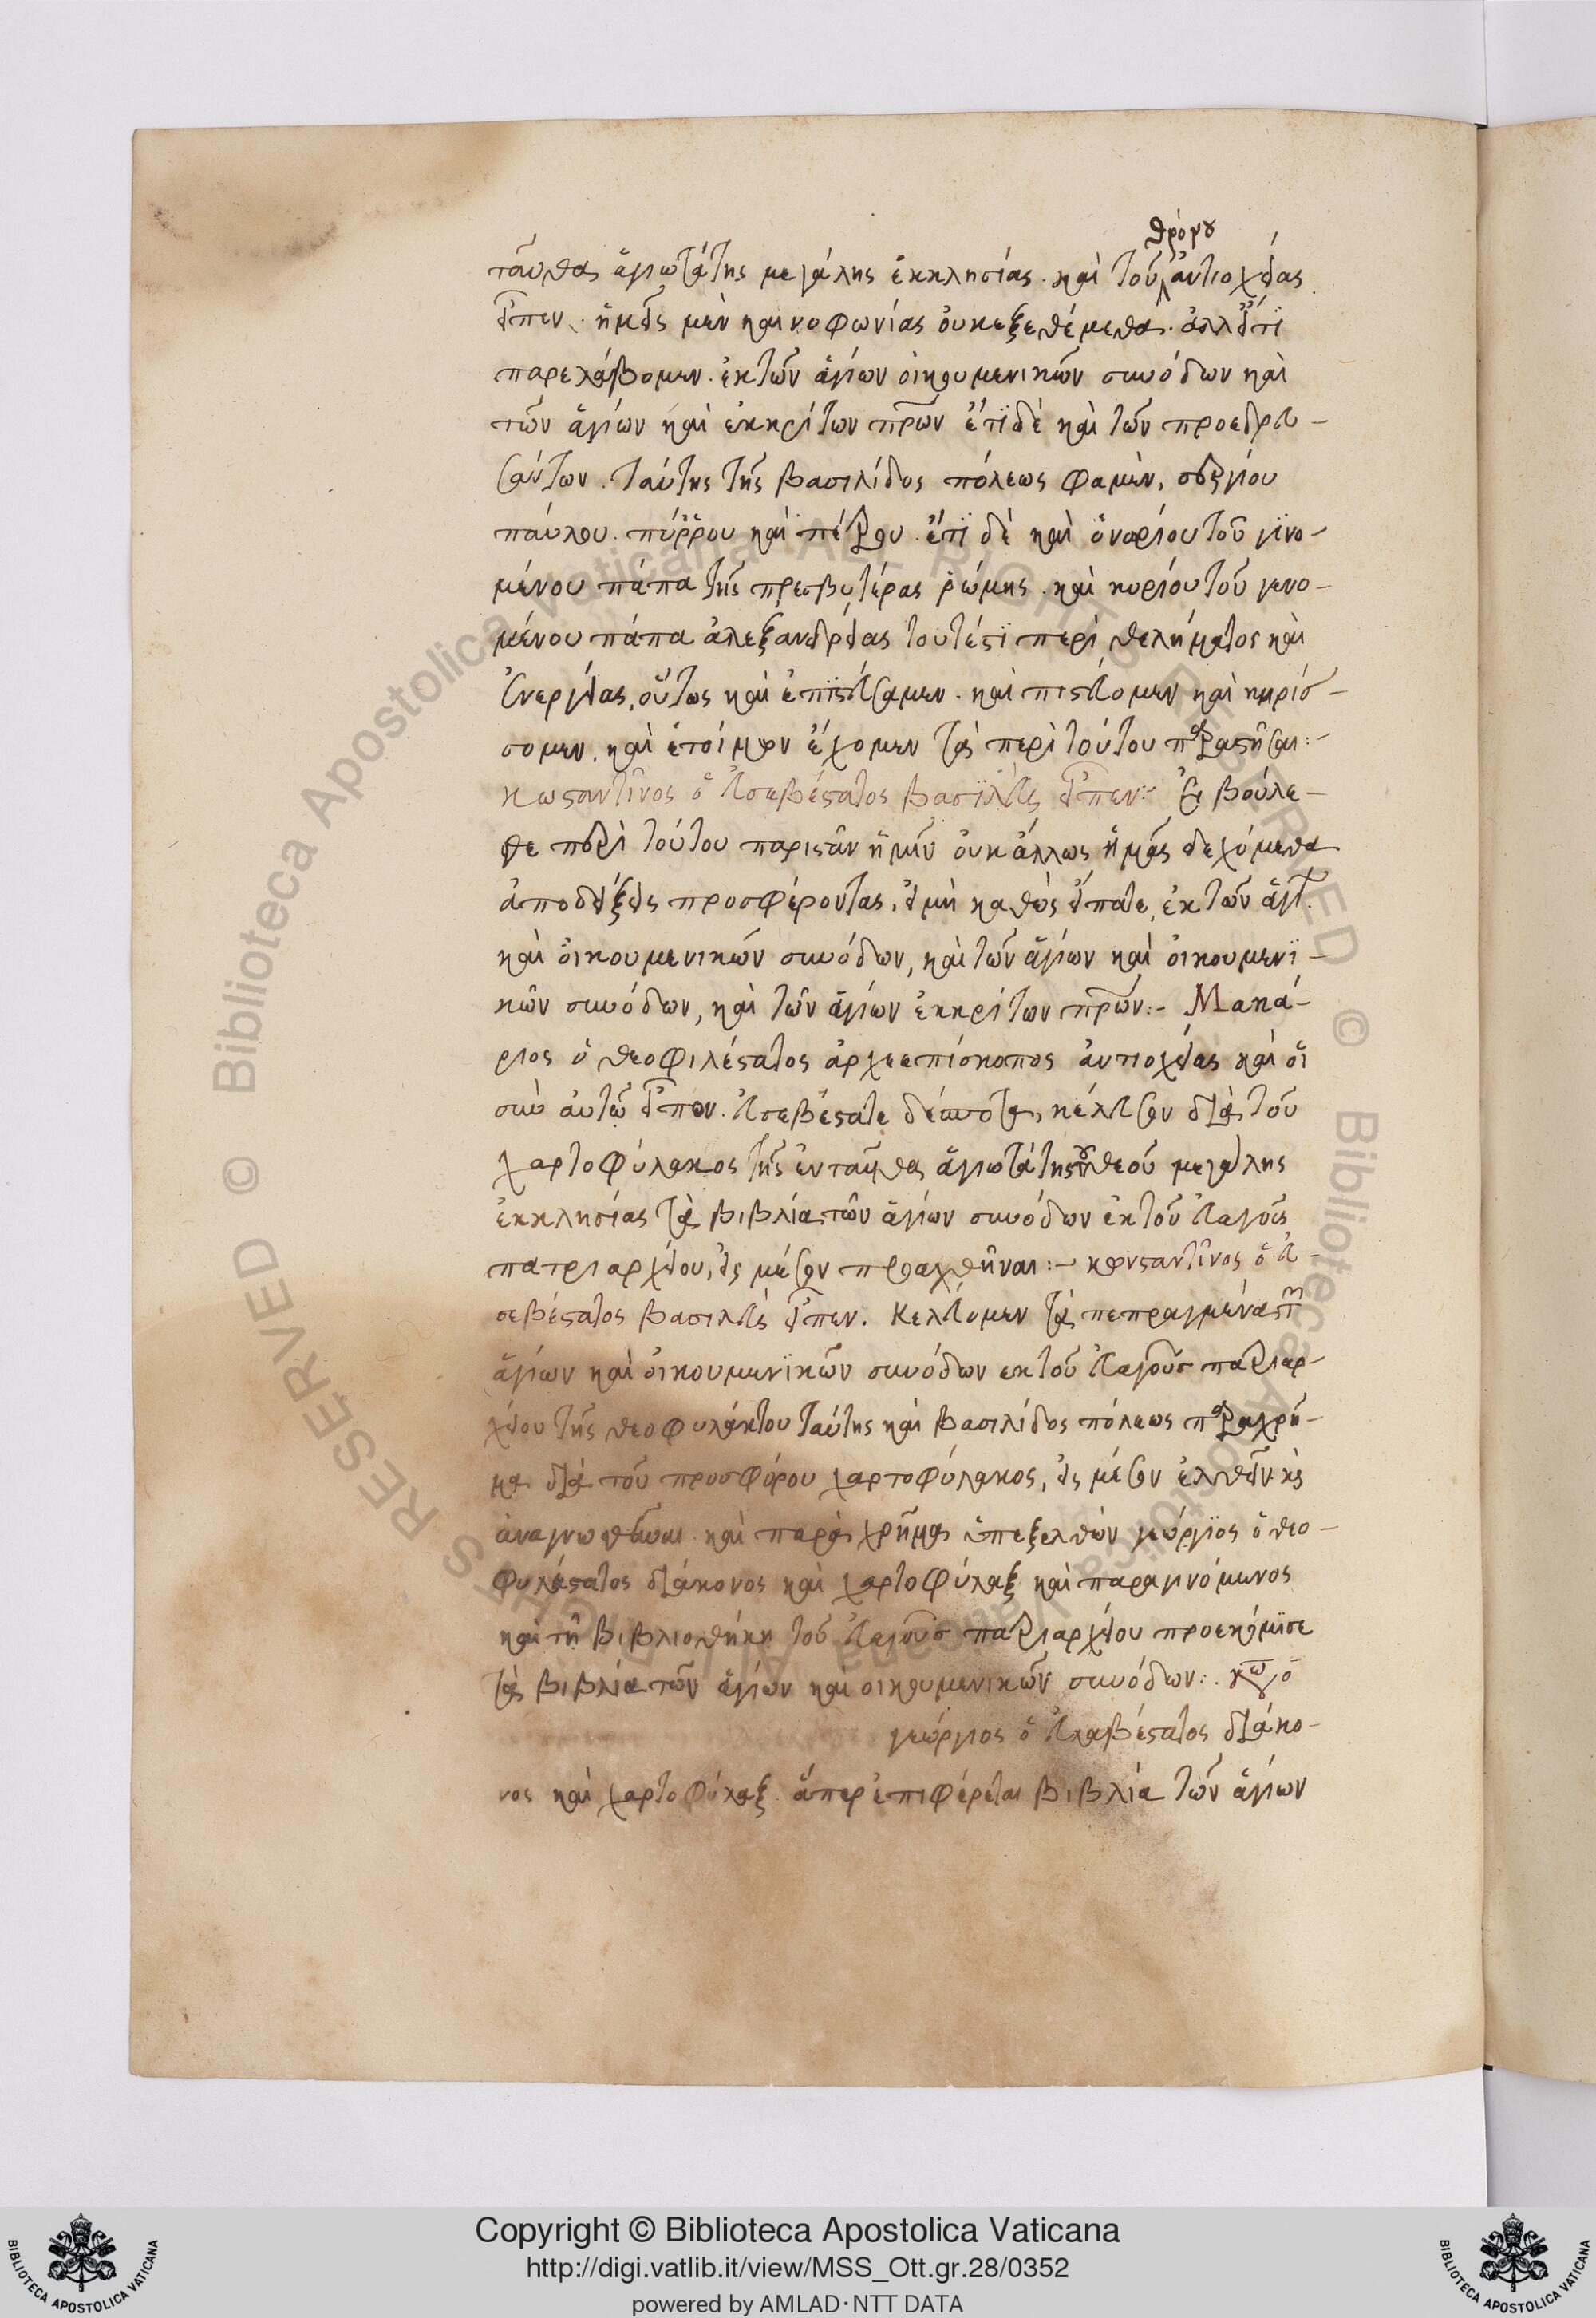 θρόνου
ταῦθα ἁγιωτάτης μεγάλης ἐκκλησίας. καὶ τοῦ ἀντιοχείας
εἶπεν. ἡμεῖς μὲν καινοφωνίας οὐκ ἐξεθέμεθα. ἀλλ' εἴ τι
παρελάβομεν. ἐκ τῶν ἁγίων οἰκουμενικῶν συνόδων καὶ
τῶν ἁγίων καὶ ἐκκρίτων πρων ἔτι δὲ καὶ τῶν προεδρευ-
σάντων. ταύτης τῆς βασιλίδος πόλεως φαμὲν, σεργίου
παύλου. πύρρου καὶ πέτρου. ἔτι δὲ καὶ ὀνορίου τοῦ γινο-
μένου πάπα τῆς πρεσβυτέρας ῥώμης. καὶ κυρίου τοῦ γενο-
μένου πάπα ἀλεξανδρείας τουτέστι περὶ θελήματος καὶ
ἐνεργείας, οὕτως καὶ ἐπιστεύσαμεν. καὶ πιστεύομεν καὶ κηρύσ-
σομεν. καὶ ἑτοίμων ἔχομεν τὰ περὶ τούτου παραστῆσαι:-
κωσταντῖνος ὁ εὐσεβέστατος βασιλεὺς εἶπεν: εἰ βούλε-
σθε περὶ τούτου παριστᾶν ἡμῖν οὐκ ἄλλως ἡμᾶς δεχόμεθα
ἀποδείξεις προσφέροντας, εἰ μὴ καθὼς εἴπατε, ἐκ τῶν ἁγί.
καὶ οἰκουμενικῶν συνόδων, καὶ τῶν ἁγίων καὶ οἰκουμενι-
κῶν συνόδων, καὶ τῶν ἁγίων ἐκκρίτων πρων:- Μακά-
ριος ὁ θεοφιλέστατος ἀρχιεπίσκοπος ἀντιοχείας καὶ οἱ
σὺν αὐτῷ εἶπον. εὐσεβέστατε δέσποτα, κέλευσον διὰ τοῦ
χαρτοφύλακος τῆς ἐνταῦθα ἁγιωτάτης τοῦ θεοῦ μεγάλης
ἐκκλησίας τὰ βιβλία τῶν ἁγίων συνόδων ἐκ τοῦ εὐαγοῦς
πατριαρχείου, εἰς μέσον πραχθῆναι:- κονσταντῖνος ὁ εὐ-
σεβέστατος βασιλεὺς εἶπεν. κελεύομεν τὰ πεπραγμένα τῶν
ἁγίων καὶ οἰκουμενικῶν συνόδων ἐκ τοῦ εὐαγοῦς πατριαρ-
χείου τῆς θεοφυλάκτου ταύτης καὶ βασιλίδος πόλεως παραχρῆ-
μα διὰ τοῦ προσφόρου χαρτοφύλακος, εἰς μέσον ἐλθεῖν κὶ
ἀναγνωσθῆναι. καὶ παρὰ χρῆμα ὑπεξελθὼν γεώργιος ὁ θεο-
φυλέστατος διάκονος καὶ χαρτοφύλαξ καὶ παραγινόμενος
καὶ τῇ βιβλιοθήκῃ τοῦ εὐαγοῦς πατριαρχείου προεκόμισε
τὰ βιβλία τῶν ἁγίων καὶ οἰκουμενικῶν συνόδων:.
γεώργιος ὁ εὐλαβέστατος διάκο-
νος καὶ χαρτοφύλαξ. ἅπερ ἐπιφέρεται βιβλία τῶν ἁγίων
Copyright © Biblioteca Apostolica Vaticana
http://digi.vatlib.it/view/MSS_Ott.gr.28/0352
powered by AMLAD·NTT DATA